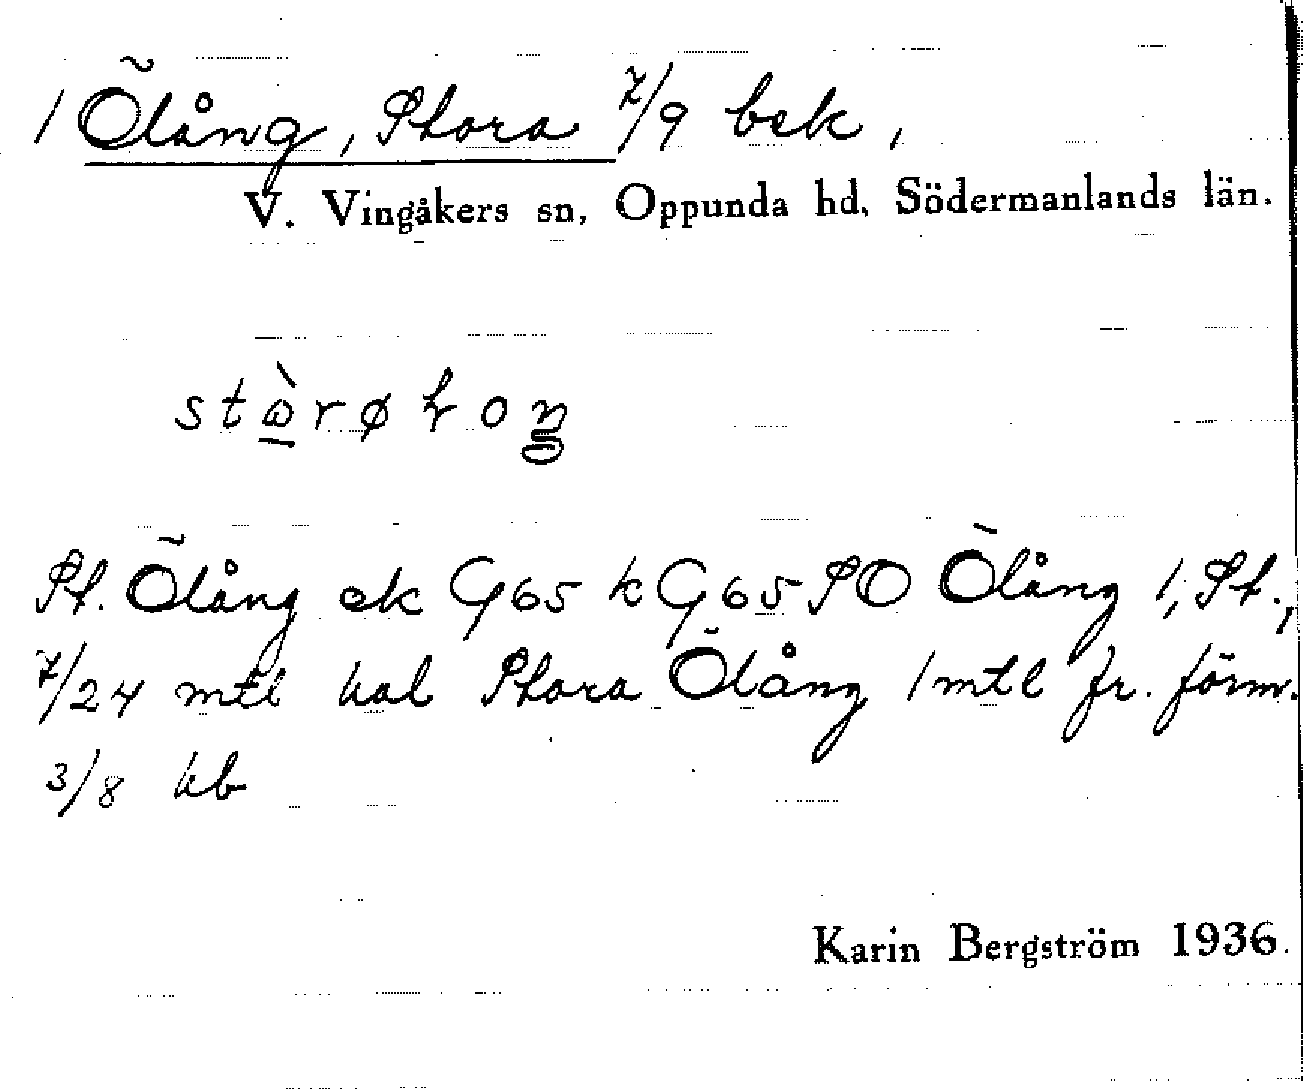 1 Ölång, Stora 7/9 bek,
V. Vingåkers sn, Oppunda hd, Södermanlands län.
St. Ölång ek G65 kG65 SO Ölång 1; St.,
7/24 mtl kal Stora Ölång 1 mtl fr. förmr.
3/8 kb
Karin Bergström 1936.